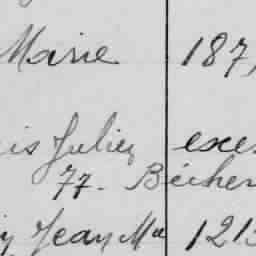 Marie 187,
is Juliez exe
77. Bécher
y Jean Mie 1213